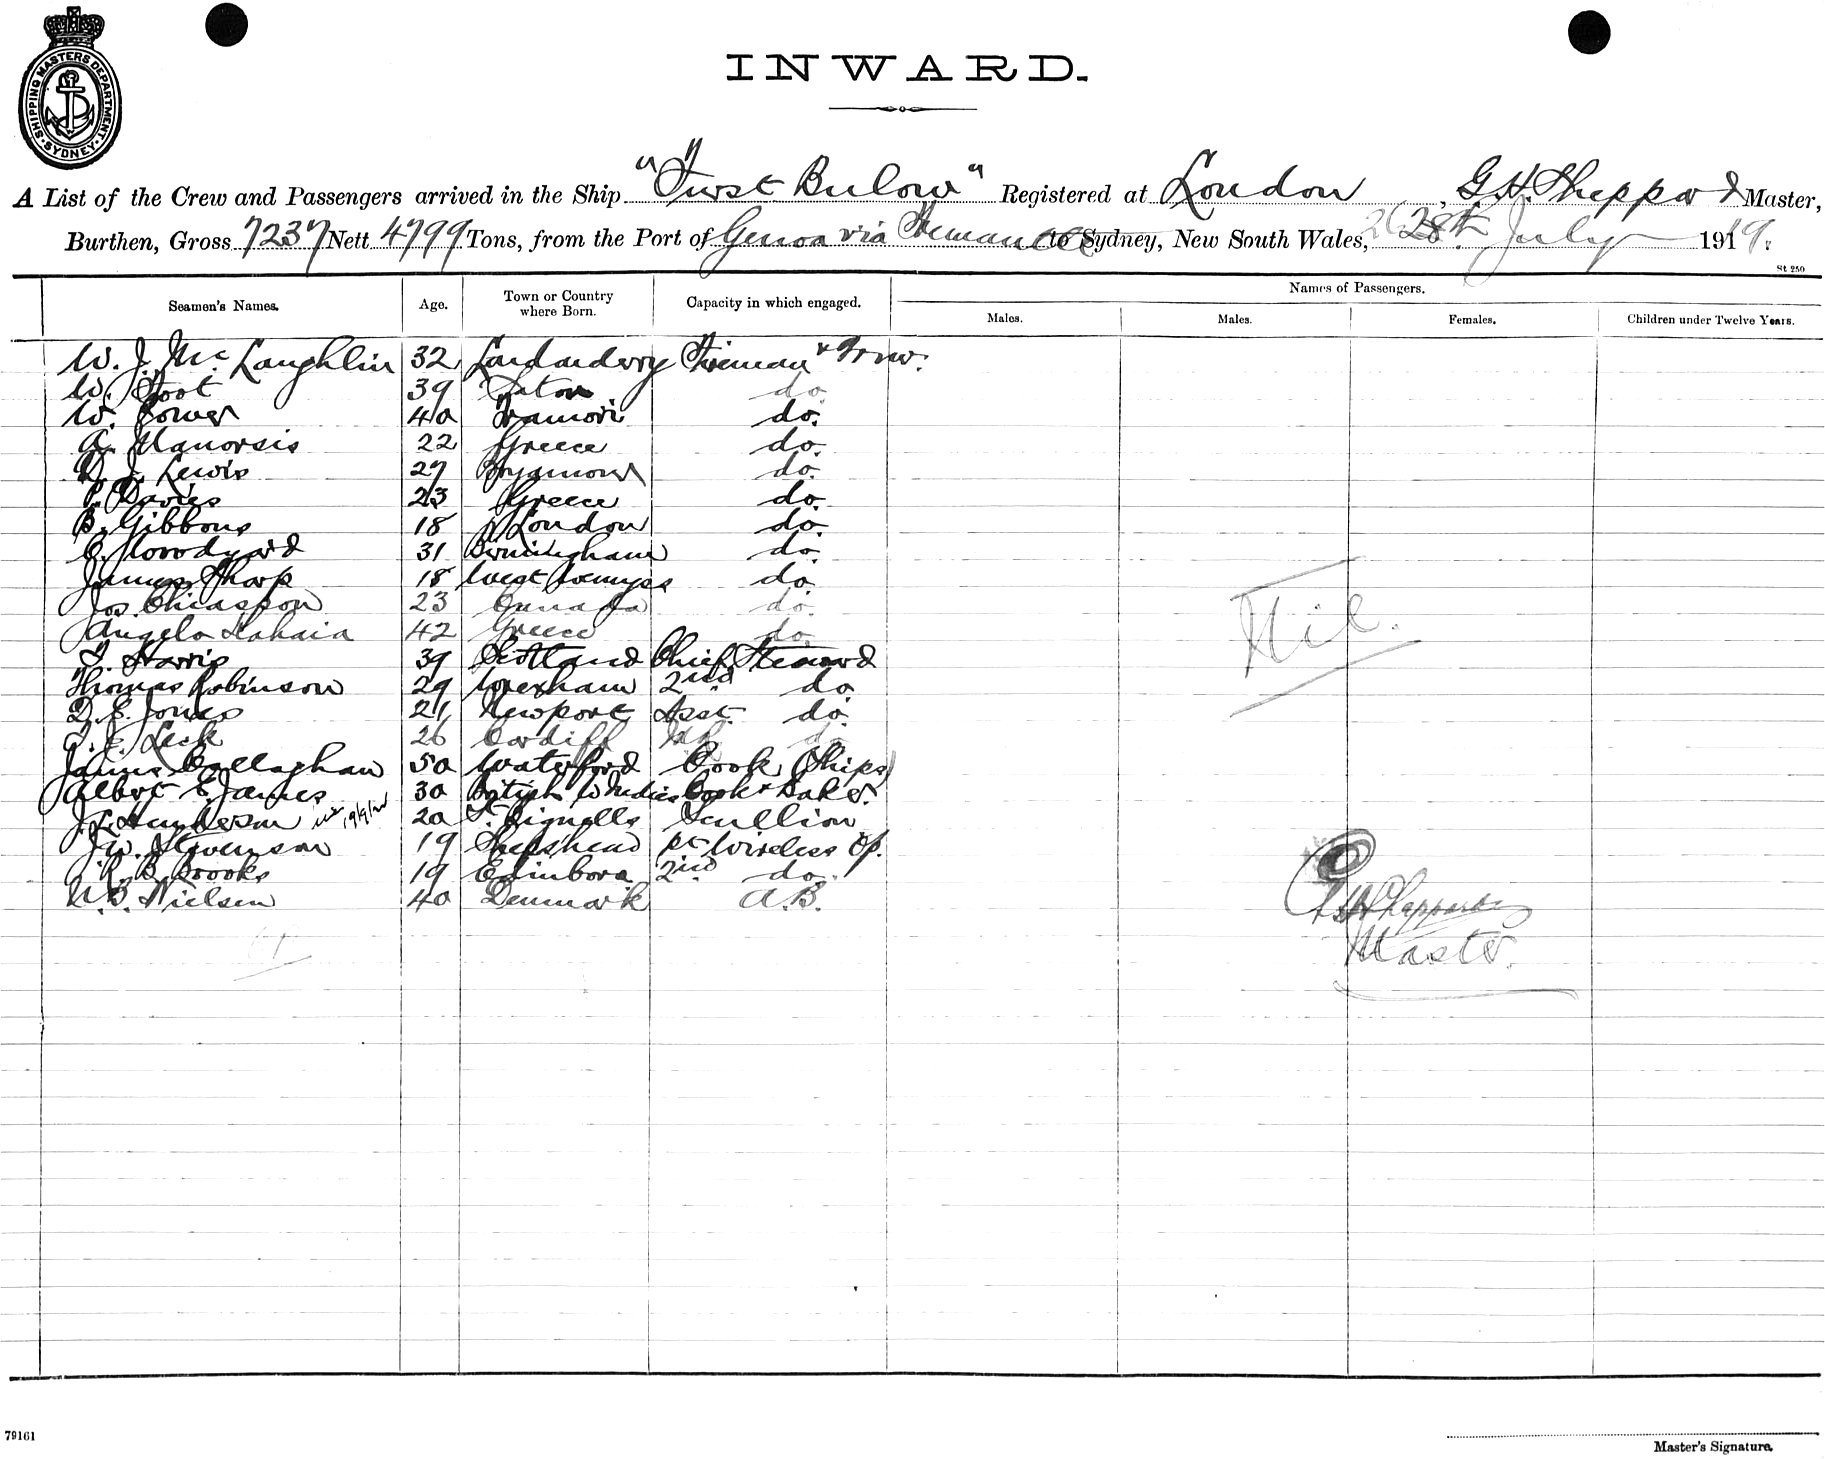 SHIPPING MASTERS DEPARTMENT
SYDNEY
INWARD.
A List of the Crew and Passengers arrived in the Ship "Furst Bulow" Registered at London, G.H. Sheppard Master,
Burthen, Gross 7237 Nett 4799 Tons, from the Port of Genoa via Fremantle to Sydney, New South Wales, 28th July 1919.
St 250
Seamen's Names. Age. Town or Country where Born. Capacity in which engaged. Names of Passengers.
Males. Males. Females. Children under Twelve Years.
W. J. McLaughlin 32 Londonderry Fireman & Trimr.
W. Foot 39 do.
W. Power 40 Tramore do.
A. 22 Greece do.
D. J. Lewis 27 Brynmawr do.
P. Davies 23 Greece do.
B. Gibbons 18 London do.
C. Woodyard 31 Birmingham do.
James Sharp 18 West Wemyss do.
Jos. Chiasson 23 Canada do.
Angelo 42 Greece do.
T. Harris 39 Scotland Chief Steward
Thomas Robinson 29 Wrexham 2nd do.
D. E. Jones 21 Newport Asst. do.
T. E. Leck 26 Cardiff do
James Callaghan 50 Waterford Cook (Ships)
Albert E. James 30 British W Indies Cook & Baker.
J. Henderson 20 Scullion
J.W. Stevenson 19 Shepshead 1st Wireless Op.
R. B. Brooks 19 Edinboro 2nd do.
N. B. Nielsen 40 Denmark A.B.
Nil.
G H Sheppard
Master.
79161
Master's Signature.